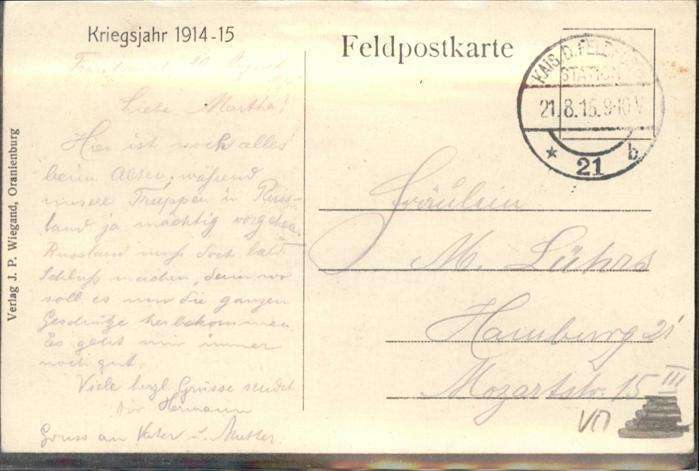 Kriegsjahr 1914-15
Feldpostkarte
KAIS. D. FELDPOST
STATION
21.8.15.9-10V
* 21 b
Verlag J. P. Wiegand, Oranienburg
Liebe Martha!
Hier ist noch alles
beim Alten, während
unsere Truppen in Russ-
land ja mächtig vorgehen.
Russland muss doch bald
Schluß machen, denn wo
soll es nur die ganzen
Geschütze herbekommen.
Es geht mir immer
noch gut.
Viele herzl. Grüsse sendet
Dir Hermann
Gruss an Vater u. Mutter
Fräulein
M. Lührs
Hamburg 21
Mozartstr. 15 III